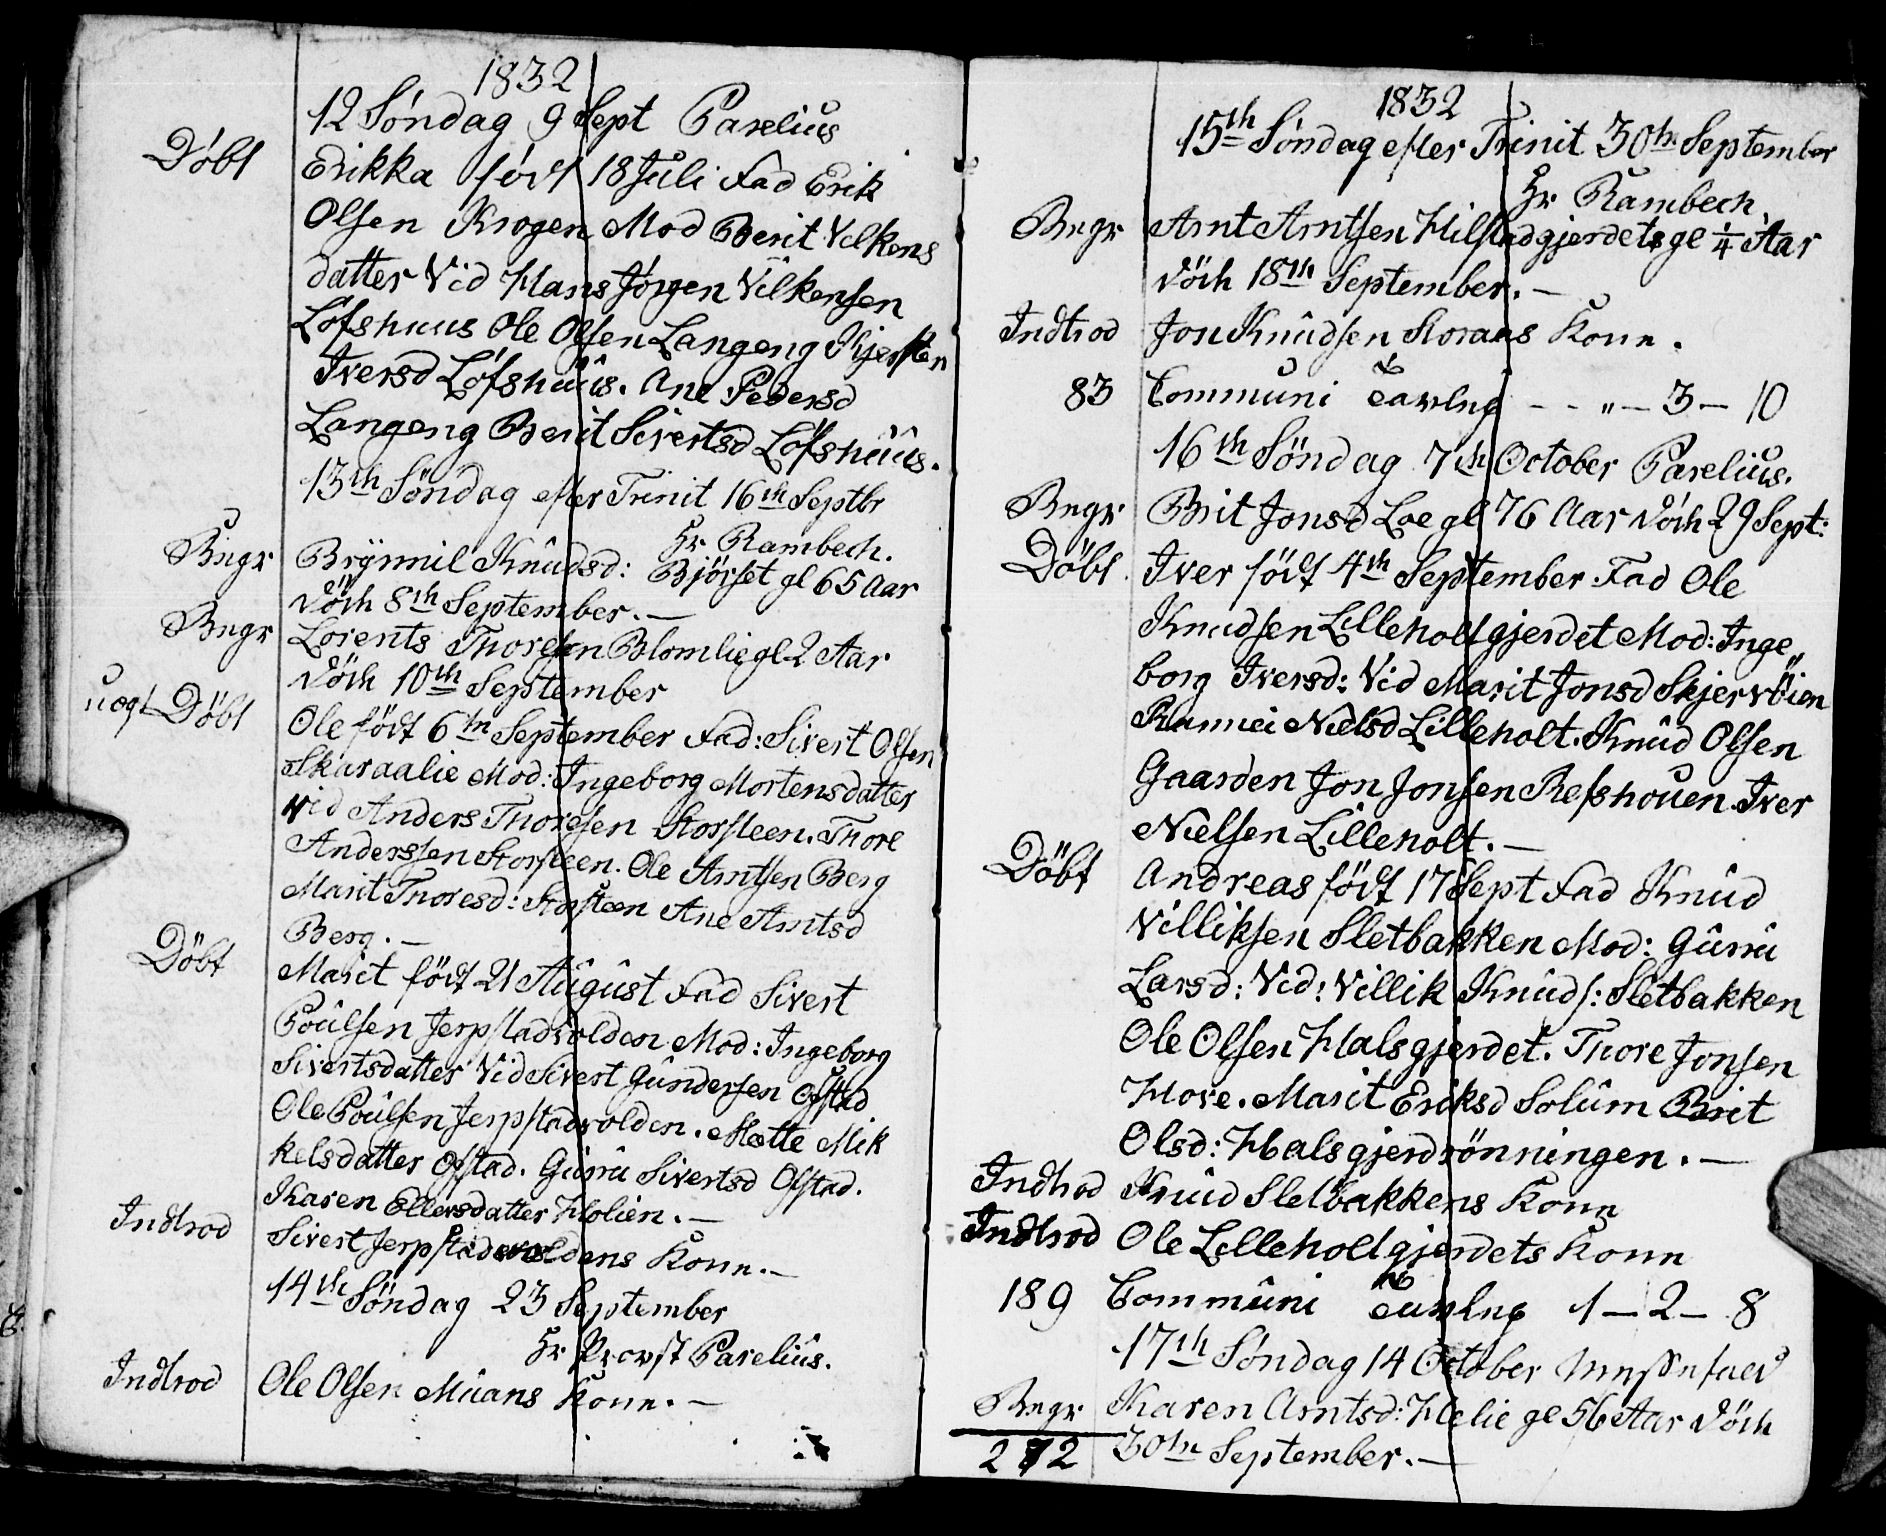 1832
12 Søndag 9 Sept Parelius
Döbt Erikka født 18 Juli Fad Erik
Olsen Krogen Mod Berit Vilkens
datter Vid Hans Jørgen Vilkensen
Løfshuus Ole Olsen Langeng Kjersten
Iversd Løfshuus. Ane Pedersd
Langeng Berit Sivertsd Løfshuus.
13th Söndag efter Trinit 16th Septbr
Hr Rambech.
Begr Brynnil Knudsd: Bjørset gl 65 Aar
död 8th September. —
Begr Lorents Thoresen Blomlie gl 2 Aar
död 10th September
uægt Döbt Ole födt 6th September Fad: Sivert Olsen
Skaraalie Mod: Ingeborg Mortensdatter
Vid Anders Thoresen Korsteen. Thore
Anderssen Korsteen. Ole Arntsen Berg
Marit Thoresd: Korsteen Ane Arntsd
Berg. —
Döbt Marit födt 21 August Fad Sivert
Poulsen Jerpstadvolden Mod: Ingeborg
Sivertsdatter Vid Sivert Gundersen Ofstad
Ole Poulsen Jerpstadvolden. Mette Mik
kelsdatter Ofstad. Guru Sivertsd Ofstad.
Karen Ellersdatter Holien. —
Indtrod Sivert Jerpstadvoldens Kone. —
14th Söndag 23 September
Hr Provst Parelius.
Indtrod Ole Olsen Muans Kone. —
1832
15th Søndag efter Trinit 30th September
Hr Rambech
Begr Arnt Arntsen Hilstadgjerdet gl 1/4 Aar
död 18th September. —
Indtrod Jon Knudsen Storaas Kone.
83 Communi Tavlng - - " - 3 - 10
16th Söndag 7th October Parelius.
Begr Brit Jonsd Loe gl 76 Aar död 29 Sept:
Döbt Iver födt 4th September Fad Ole
Knudsen Lilleholtgjerdet Mod: Inge„
borg Iversd: Vid Marit Jonsd Skjervöien
Rannei Nielsd Lilleholt. Knud Olsen
Gaarden Jon Jonsen Refshouen Iver
Nielsen Lilleholt. —
Döbt Andreas födt 17 Sept Fad Knud
Villiksen Sletbakken Mod: Guru
Larsd: Vid: Villik Knuds: Sletbakken
Ole Olsen Halsgjerdet. Thore Jonsen
Hove. Marit Eriksd Solum Brit
Olsd: Halsgjerdrönningen. —
Indtrod Knud Sletbakkens Kone
Indtrod Ole Lilleholtgjerdets Kone
189 Communi Tavlng 1 - 2 - 8
17th Søndag 14 October Messefald
Begr Karen Arntsd: Helie gl 56 Aar död
272 30th September. —